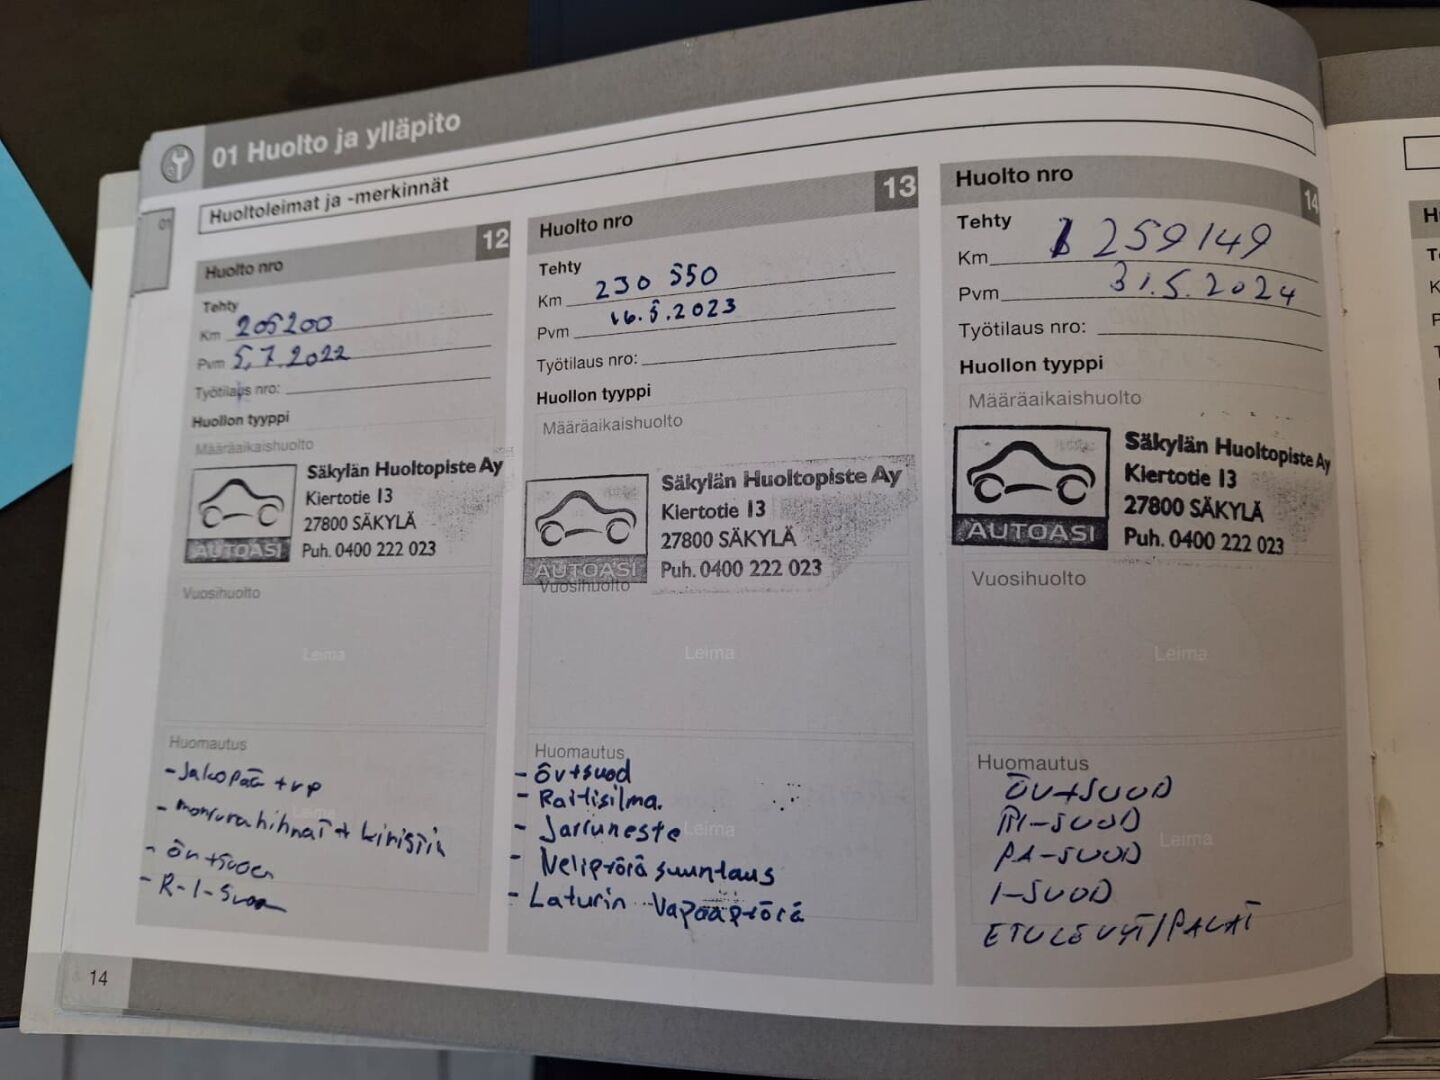 01 Huolto ja ylläpito
01
Huoltoleimat ja -merkinnät
Huolto nro 12
Tehty
Km 205200
Pvm 5.7.2022
Työtilaus nro:
Huollon tyyppi
Määräaikaishuolto
AUTOASI
Säkylän Huoltopiste Ay
Kiertotie 13
27800 SÄKYLÄ
Puh. 0400 222 023
Vuosihuolto
Leima
Huomautus
- Jakopää + vp
- monurahihnat + kiristin
- öv+suod
- R-I-Suod
Huolto nro 13
Tehty
Km 230 550
Pvm 16.5.2023
Työtilaus nro:
Huollon tyyppi
Määräaikaishuolto
AUTOASI
Säkylän Huoltopiste Ay
Kiertotie 13
27800 SÄKYLÄ
Puh. 0400 222 023
Vuosihuolto
Leima
Huomautus
- Öv+suod
- Raitisilma.
- Jarruneste
Leima
- Nelipyörä suuntaus
- Laturin Vapaapyörä
Huolto nro 14
Tehty
Km 259149
Pvm 31.5.2024
Työtilaus nro:
Huollon tyyppi
Määräaikaishuolto
AUTOASI
Säkylän Huoltopiste Ay
Kiertotie 13
27800 SÄKYLÄ
Puh. 0400 222 023
Vuosihuolto
Leima
Huomautus
ÖV+SUOD
RI-SUOD
Leima
PA-SUOD
I-SUOD
ETULEVYT/PALAT
14